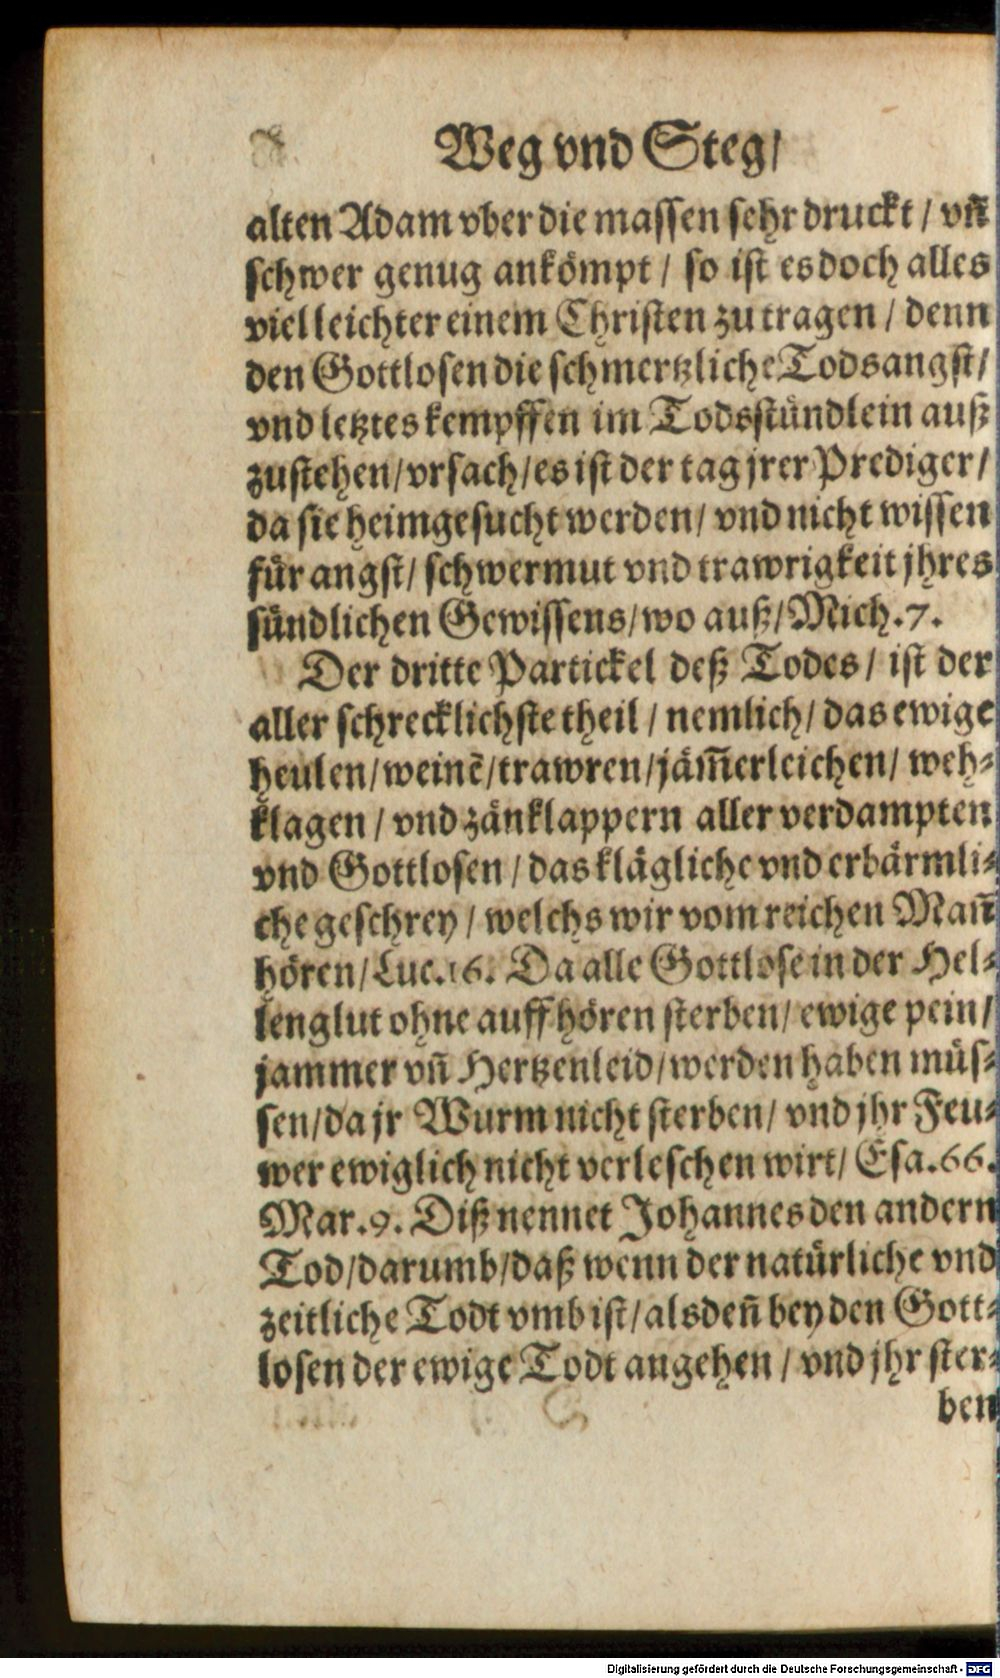 Weg vnd Steg/
alten Adam vber die massen sehr druckt / vn̄
schwer genug ankömpt / so ist es doch alles
viel leichter einem Christen zu tragen / denn
den Gottlosen die schmertzliche Todsangst/
vnd letztes kempffen im Todsstündlein auß
zustehen/vrsach/es ist der tag jrer Prediger/
da sie heimgesucht werden/ vnd nicht wissen
für angst/ schwermut vnd trawrigkeit jhres
sündlichen Gewissens/wo auß/Mich.7.
Der dritte Partickel deß Todes/ ist der
aller schrecklichste theil / nemlich/ das ewige
heulen/weinē/trawren/jäm̄erleichen/ weh-
klagen / vnd zänklappern aller verdampten
vnd Gottlosen / das klägliche vnd erbärmli-
che geschrey / welchs wir vom reichen Man̄
hören/Luc.16. Da alle Gottlose in der Hel-
lenglut ohne auffhören sterben/ ewige pein/
jammer vn̄ Hertzenleid/werden haben müs-
sen/da jr Wurm nicht sterben/ vnd jhr Feu-
wer ewiglich nicht verleschen wirt/ Esa.66.
Mar.9. Diß nennet Johannes den andern
Tod/darumb/daß wenn der natürliche vnd
zeitliche Todt vmb ist/alsden̄ bey den Gott-
losen der ewige Todt angehen / vnd jhr ster-
ben
Digitalisierung gefördert durch die Deutsche Forschungsgemeinschaft - DFG